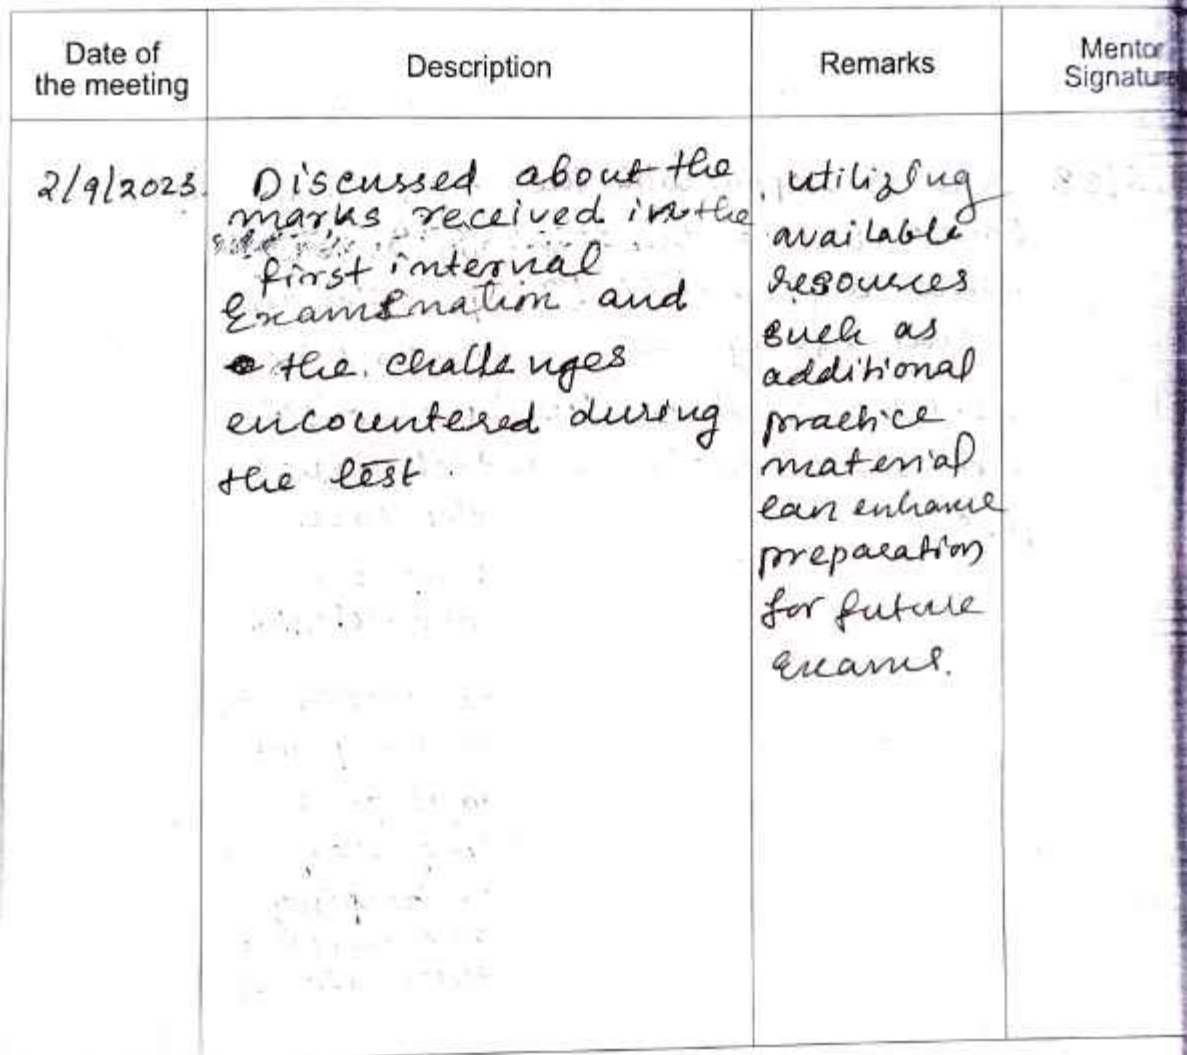 Date of
the meeting
Description
Remarks
Mentor
Signature
2/9/2023.
Discussed about the
marks received in the
first internal
Examination and
the challenges
encountered during
the test.
utilizing
available
resources
such as
additional
practice
material
can enhance
preparation
for future
exams.